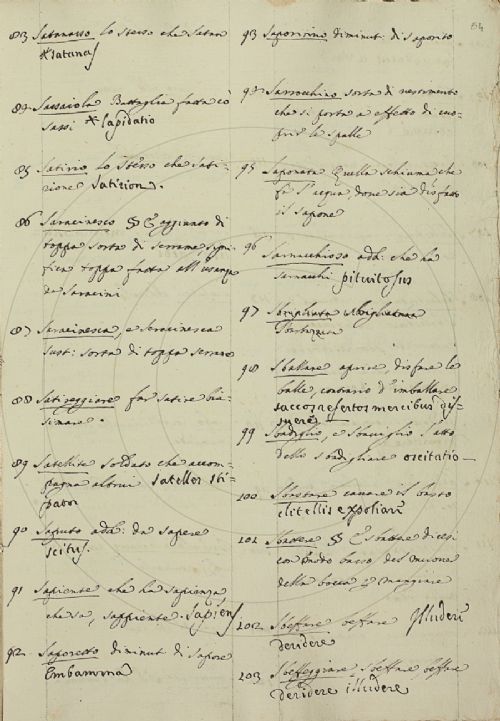 83 Satanasso lo stesso che Satana
* Satanas
84 Sassaiola Battaglia fatta cō
sassi * lapidatio
85 Satirio lo stesso che Sati-
rione Satirion.
86 Saracinesco aggiunto di
toppa sorta di serrame signi-
fica toppa fatta all'usanza
de Saracini
87 Saracinesca, e Seracinesca
sust: sorta di toppa serrame
88 Satireggiare far satire bia-
simare.
89 Satellite soldato che accom-
pagna altrui satelles sti-
pator
90 Saputo add: da sapere
scitus.
91 Sapiente che ha sapienza,
che sa, sappiente Sapiens
92 Saporetto diminut: di sapore
Embamma
84
93 Saporitino diminut: di saporito
94 Sarrocchino sorta di vestimento
che si porta a effetto di cuo-
prir le spalle
95 Saponata Quella schiuma che
fà l'acqua dove sia disfatto
il sapone
96 Sarnacchioso add: che ha
sarnacchi pituitosus
97
98 Sballare aprire, disfare le
balle, contrario d'imballare
saccos refertos mercibus dis-
suere
99 Sbadiglio, e sbaviglio l'atto
dello sbadigliare oscitatio
100 Sbastare cavare il basto
clitellis expoliare
101 Sbattere sbattere dicesi
con modo basso, del
della bocca, mangiare
102 Sbeffare beffare Illudere
deridere
103 Sbeffeggiare sbeffare, beffare
deridere illudere